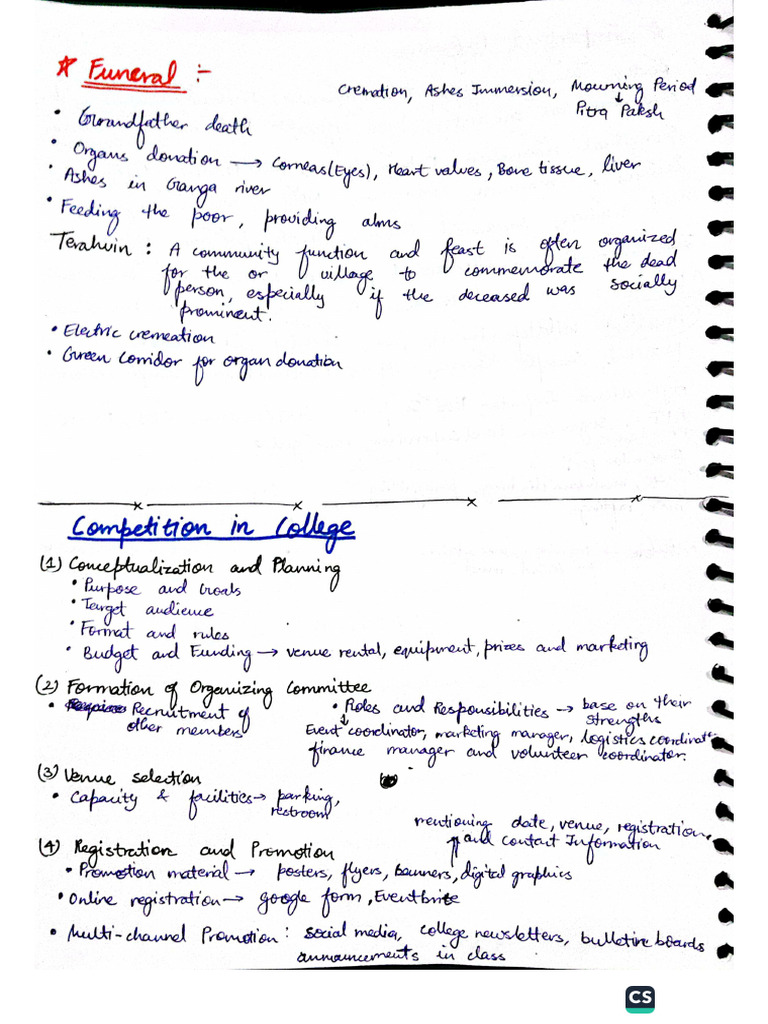 * Funeral :-
Cremation, Ashes Immersion, Mourning Period
↓
Pitra Paksh
• Grandfather death
• Organs donation → Corneas(Eyes), Heart valves, Bone tissue, liver
• Ashes in Ganga river
• Feeding the poor, providing alms
Terahvin : A community function and feast is often organized
for the or village to commemorate the dead
person, especially if the deceased was socially
prominent.
• Electric cremeation
• Green Corridor for organ donation
Competition in College
(1) Conceptualization and Planning
• Purpose and Goals
• Target audience
• Format and rules
• Budget and Funding → venue rental, equipment, prizes and marketing
(2) Formation of Organizing Committee
• Recruitment of
other members
• Roles and Responsibilities → base on their
strengths
↓
Event coordinator, marketing manager, logistics coordinat
finance manager and volunteer coordinator.
(3) Venue selection
• Capacity & facilities → parking,
restroom
(4) Registration and Promotion
mentioning date, venue, registration,
and contact Information
• Promotion material → posters, flyers, banners, digital graphics
• Online registration → google form, Eventbrite
• Multi-channel Promotion : social media, college newsletters, bulletine boards
announcements in class
CS